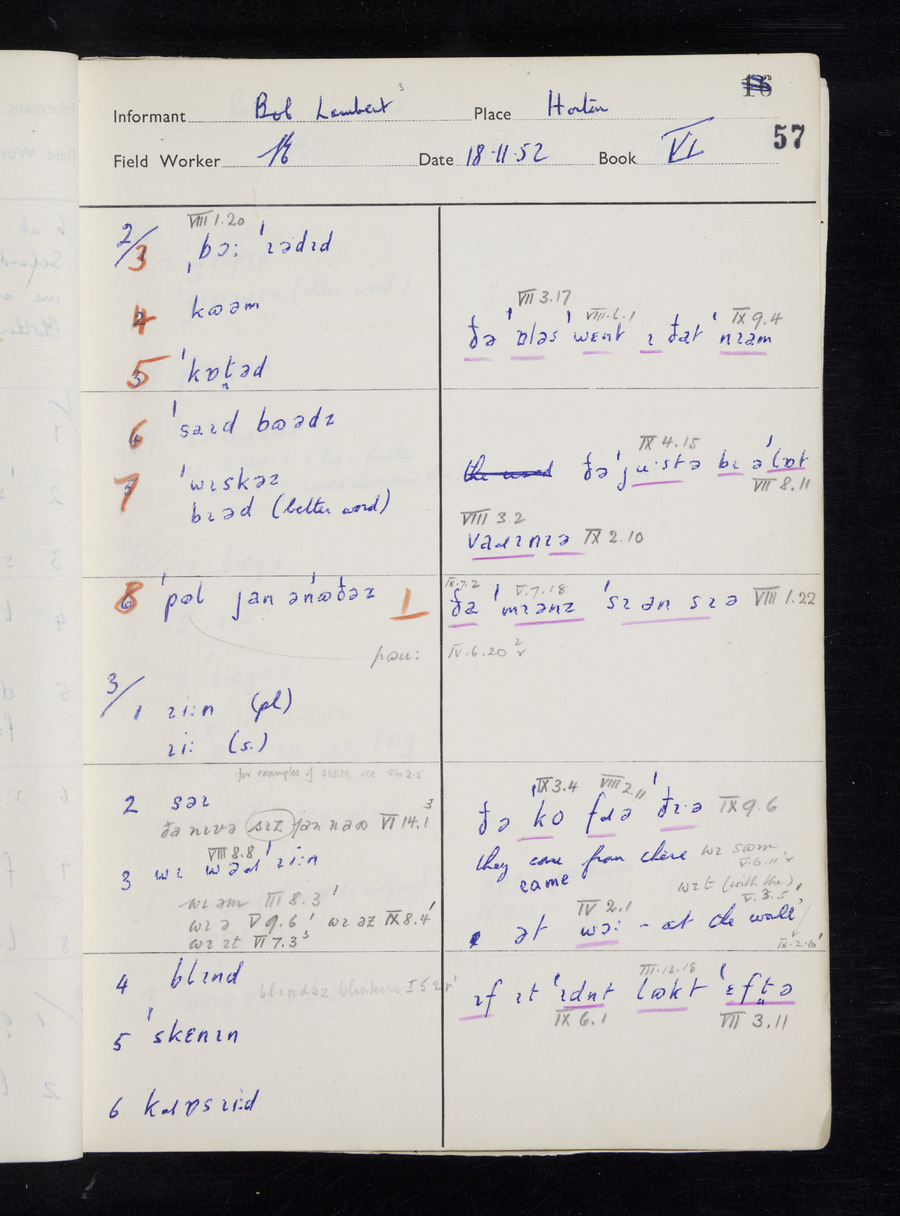 16
Informant Bob Lambert Place Horton
57
Field Worker Date 18·11·52 Book VI
2/
VIII 1.20
3 ˌbəː ˈɹədɪd
4 kɷəm
VII 3.17 VIII.6.1 IX 9.4
ðə ˈɒləs ˈwɛnt ɪ ðat ˈnɪəm
5 ˈkɒt̪əd
6 ˈsaɪd bɷədz
IX 4.15
the word ðə ˈjuːstə bɪ əˈlɒt
VII 8.11
7 ˈwɪskəz
bɪəd (better word)
VIII 3 2
vaɹɪnɪə IX 2.10
8 ˈpɒl jan ənˈɷðəz 1
IX.7.2 V.7.18
ða ˈmɪənz ˈsɪ ən sɪə VIII 1.22
pɷuː IV.6.20
3/
1 ɹiːn (pl)
ɹiː (s.)
for examples of SEEM, see VIII 2.5
2 səɪ
ða nɪvə sɪz jan naɷ VI 14.1 3
IX 3.4 VIII 2.11
ðə ˈkɒ fɹə ˈðɪə IX 9.6
VIII 8.8
3 wɪ wədˈɹiːn
they come from there
came
wɪ əm III 8.3
wɪ ə V 9.6 wɪ əz IX 8.4
wɪ ɪt VI 7.3
wɪt (with the) V.3.5
IV 2.1
ət wɔː – at the wall
4 blɪnd
blɪndəz blinkers I 5 2
III.12.18
ɪf ɪt ˈɪdnt lɷkt ˈɛft̪ə
IX 6.1 VII 3.11
5 ˈskɛnɪn
6 kɒsɹiːd